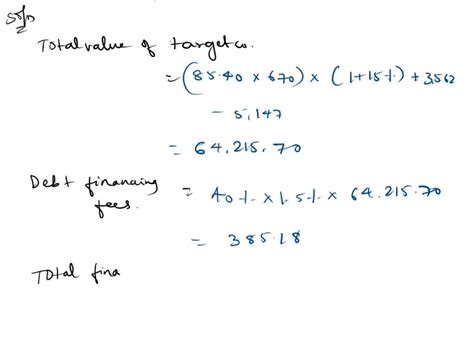 Soln
Total value of target co.
= (85.40 x 670) x (1+15%) + 3,562
- 5,147
= 64,215.70
Debt financing = 40% x 1.5% x 64,215.70
fees.
= 385.18
Total fina